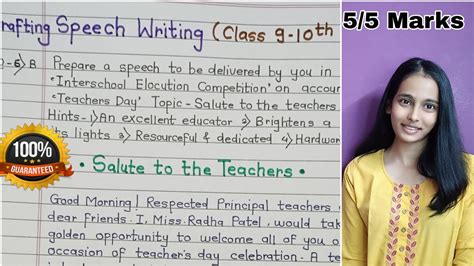 rafting Speech Writing (Class 9-10th
5/5 Marks
Q-6) B Prepare a speech to be delivered by you in
'Interschool Elocution Competition' on accoun
'Teachers Day' Topic - Salute to the teachers
Hints - 1) An excellent educator 2) Brightens a
its lights 3) Resourceful & dedicated 4) Hardwor
100%
GUARANTEED
• Salute to the Teachers •
Good Morning! Respected Principal teachers
dear friends. I, Miss. Radha Patel, would tak
golden opportunity to welcome all of you o
occasion of teacher's day celebration. A te